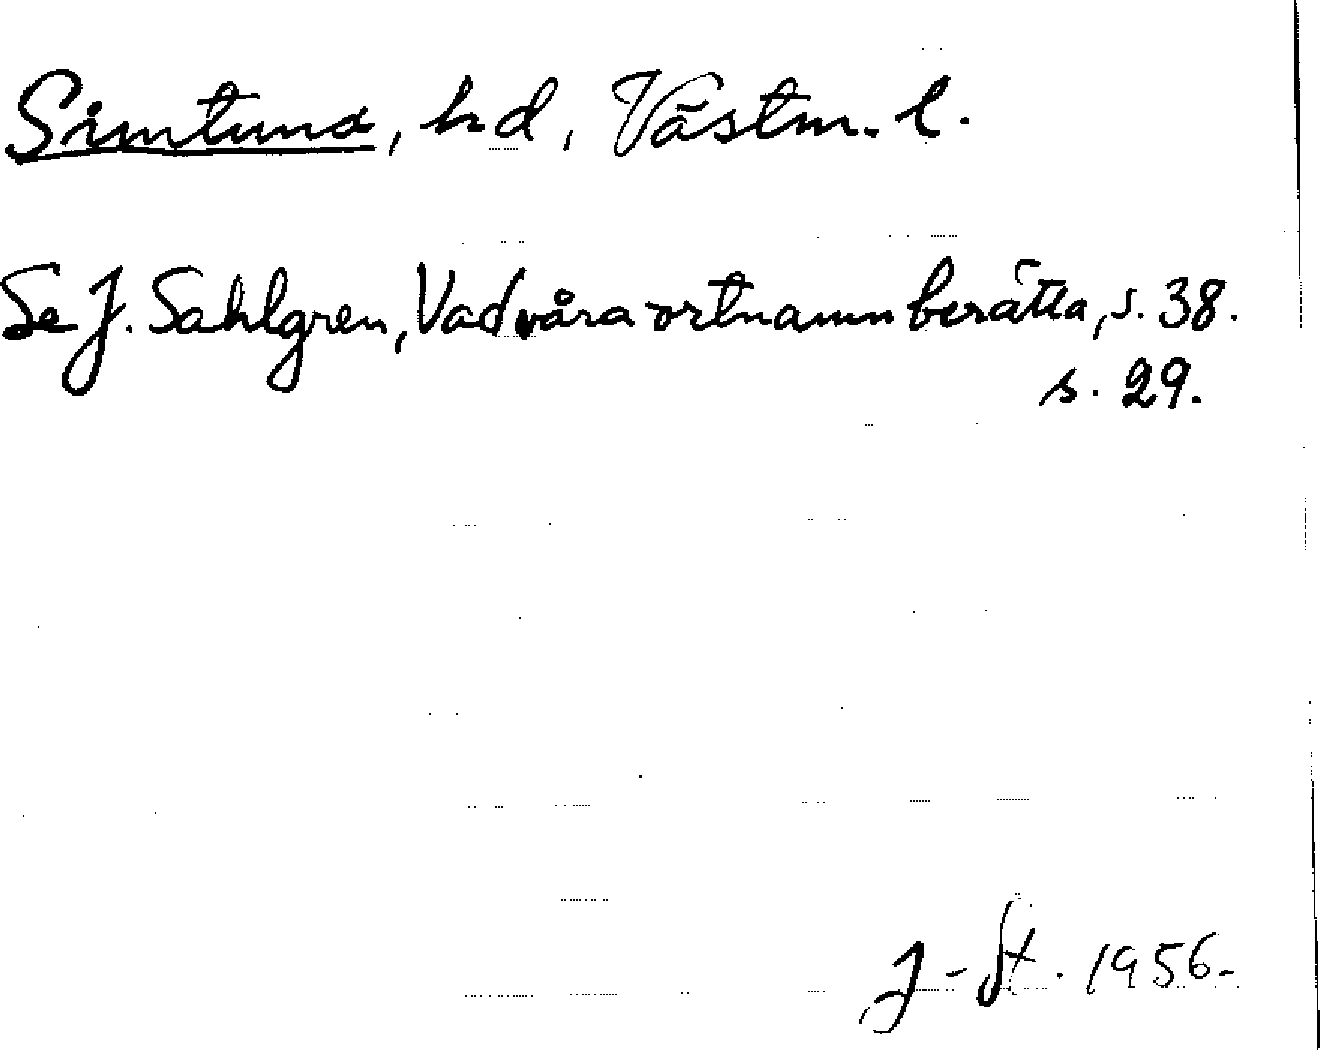 Simtuna, hd, Västm. l.
Se J. Sahlgren, Vad våra ortnamn berätta, s. 38.
s. 29.
J-St. 1956.